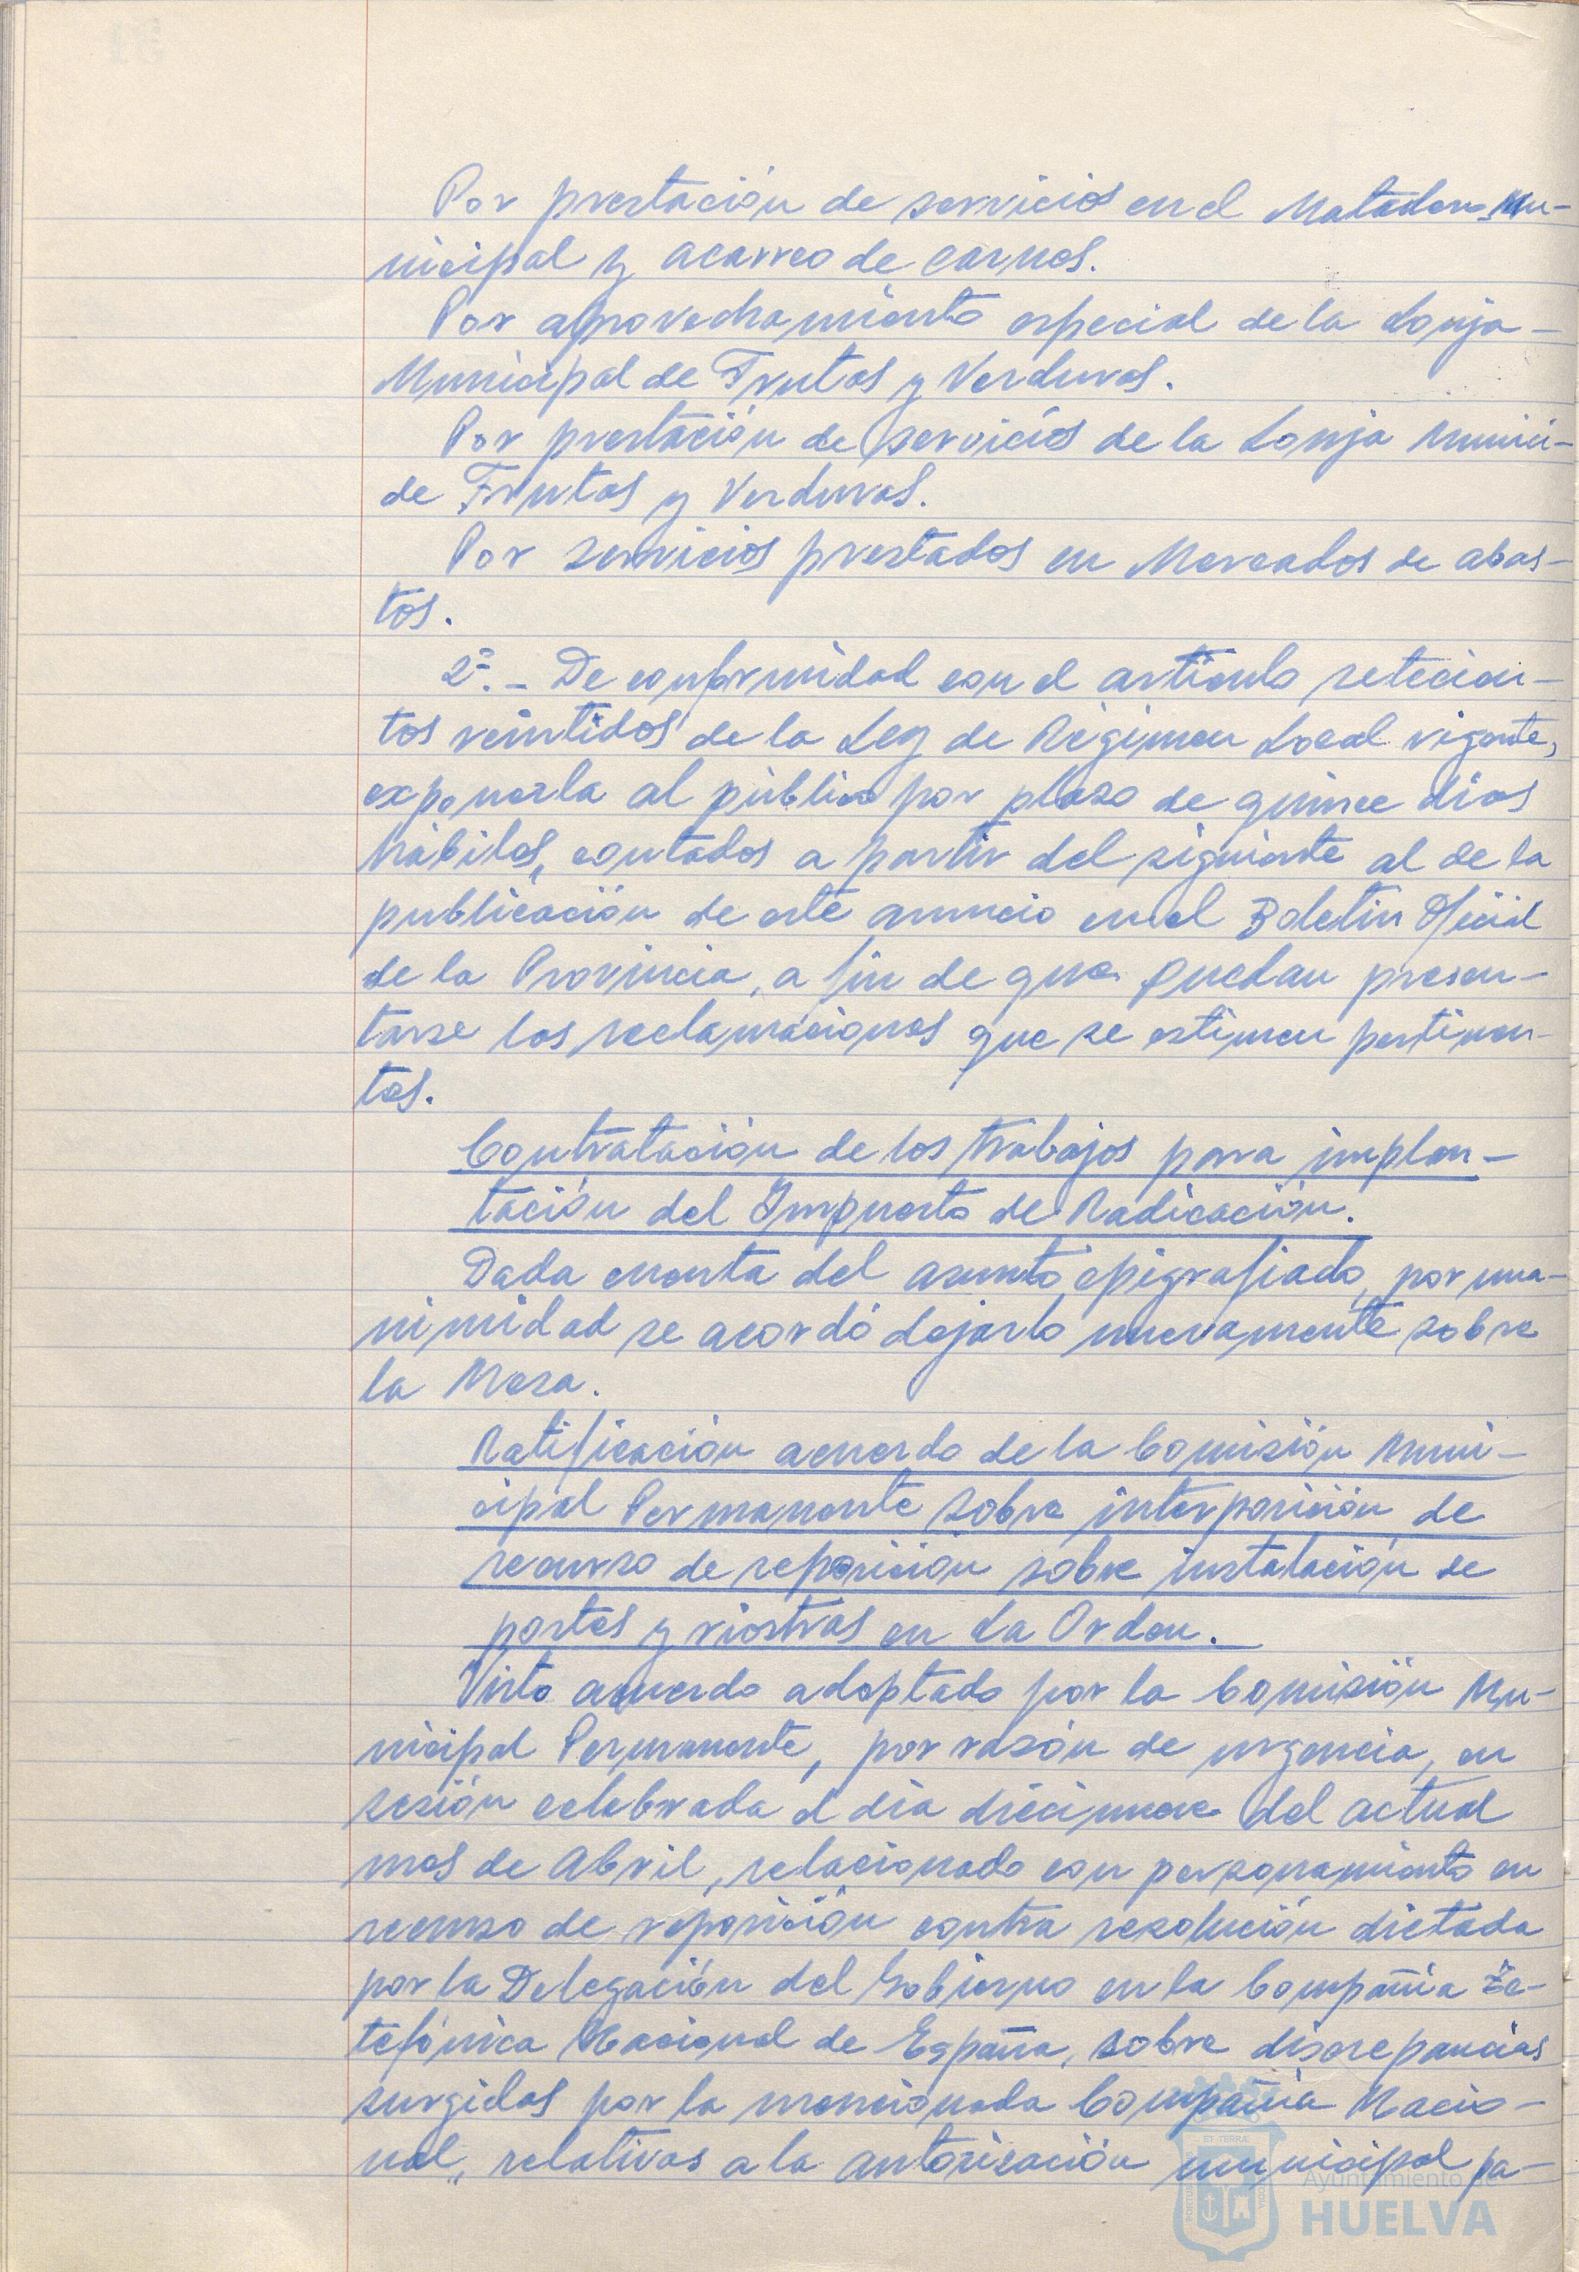 Por prestación de servicios en el Matadero Mu-
nicipal y acarreo de carnes.
Por aprovechamiento especial de la Lonja -
Municipal de Frutas y Verduras.
Por prestación de servicios de la Lonja Munici-
de Frutas y Verduras.
Por servicios prestados en Mercados de abas-
tos.
2º.- De conformidad con el artículo setecien-
tos veintidos de la Ley de Régimen Local vigente,
exponerla al público por plazo de quince dias
hábiles, contados a partir del siguiente al de la
publicación de este anuncio en el Boletin Oficial
de la Provincia, a fin de que puedan presen-
tarse las reclamaciones que se estimen pertinen-
tes.
Contratación de los trabajos para implan-
tación del Impuesto de Radicación.
Dada cuenta del asunto epigrafiado, por una-
nimidad se acordó dejarlo nuevamente sobre
la Mesa.
Ratificación acuerdo de la Comisión Muni-
cipal Permanente sobre interposición de
recurso de reposición sobre instalación de
postes y riostras en La Orden.
Visto acuerdo adoptado por la Comisión Mu-
nicipal Permanente, por razón de urgencia, en
sesión celebrada el dia diecinueve del actual
mes de Abril, relacionado con personamiento en
recurso de reposición contra resolución dictada
por la Delegación del Gobierno en la Compañia Te-
lefónica Nacional de España, sobre discrepancias
surgidas por la mencionada Compañia Nacio-
nal, relativas a la autorización municipal pa-
Ayuntamiento de
HUELVA